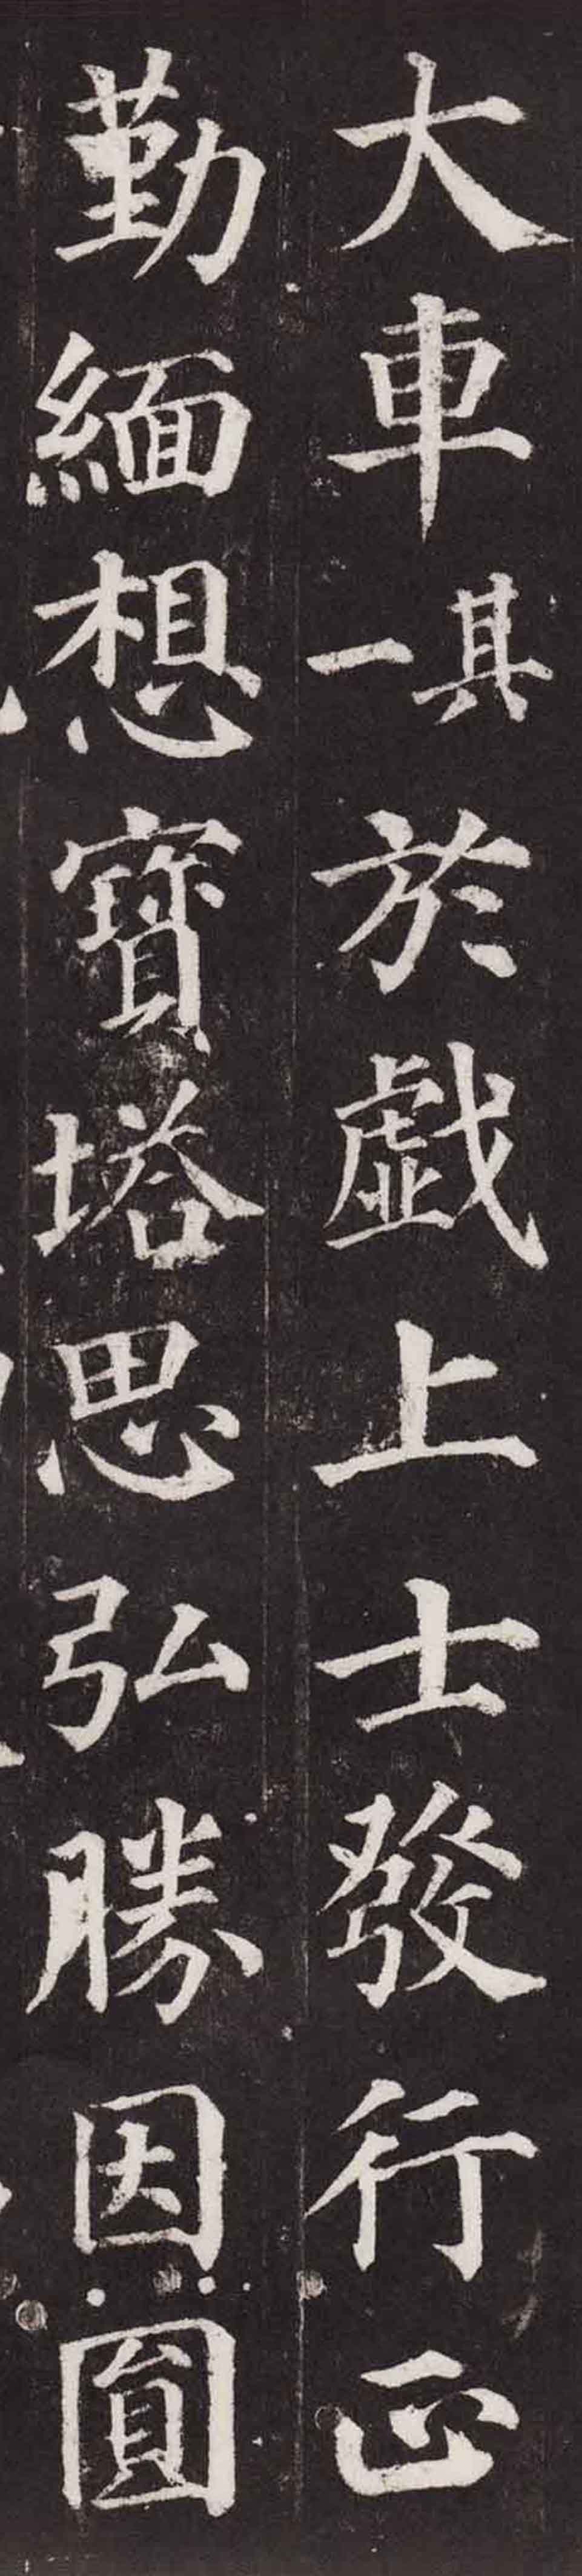 大車其一於戲上士發行正
勤緬想寶塔思弘勝因圓